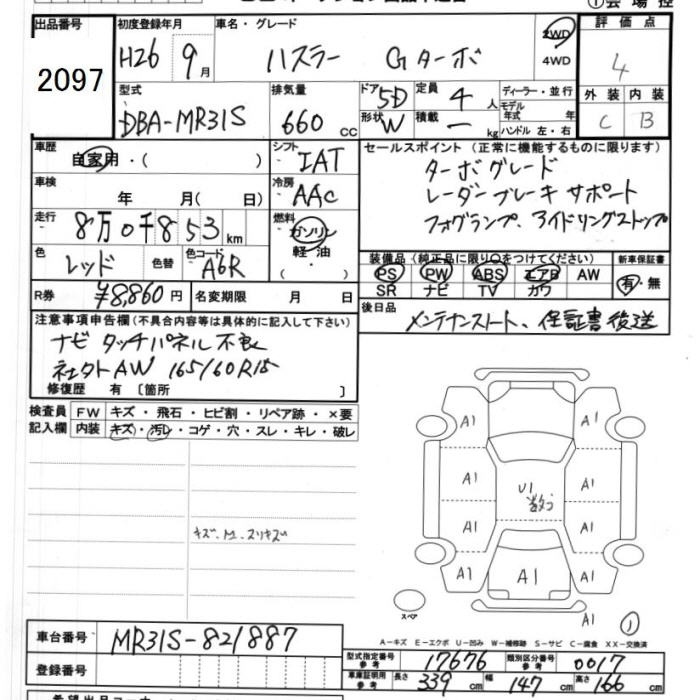 出品番号 初度登録年月 車名・グレード 2WD 評価点
2097 H26 9月 ハスラー Gターボ 4WD 4
型式 排気量 ドア 5D 定員 4人 ディーラー・並行 外装 内装
DBA-MR31S 660 cc 形状 W 積載 ー kg モデル年式 年 C B
ハンドル 左・右
車歴 自家用・( ) シフト IAT セールスポイント (正常に機能するものに限ります)
車検 年 月( 日) 冷房 AAC ターボグレード
レーダーブレーキサポート
走行 8万0千853km 燃料 ガソリン 軽油 ( ・ ) フォグランプ、アイドリングストップ
色 レッド 色替 色コード A6R 装備品 (純正品に限り○をつけてください) 新車保証書
PS PW ABS エアB AW 有・無
SR ナビ TV カワ
R券 ¥8,860円 名変期限 月 日 後日品 メンテナンスノート、保証書後送
注意事項申告欄(不具合内容等は具体的に記入して下さい)
ナビ タッチパネル不良
社外AW 165/60R15
修復歴 有 〔箇所 〕
検査員 FW キズ・飛石・ヒビ割・リペア跡・×要
記入欄 内装 キズ・汚レ・コゲ・穴・スレ・キレ・破レ
A1 A1
A1 U1 A1
A1 A1
A1 A1 A1
スペア A1 ①
A-キズ E-エクボ U-凹み W-補修跡 S-サビ C-腐食 XX-交換済
車台番号 MR31S-821887
型式指定番号 参考 17676 類別区分番号 参考 0017
登録番号 車庫証明用 参考 長さ 339cm 幅 147cm 高さ 166cm